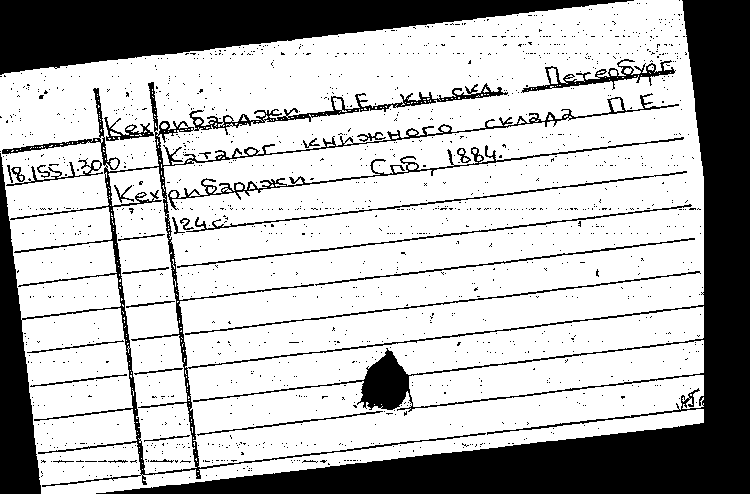 Кехрибарджи, П.Е. кн. скл. Петербург
18.155.1.300. Каталог книжного склада П.Е.
Кехрибарджи. Спб., 1884.
124 с.